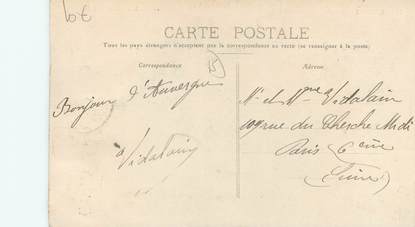 10 €
CARTE POSTALE
Tous les pays étrangers n'acceptent pas la correspondance au recto (se renseigner à la poste)
Correspondance
Adresse
15
Bonjour d'Auvergne
Vidalain
Mr et Mme Vidalain
109 rue du Cherche Midi
Paris 6ème